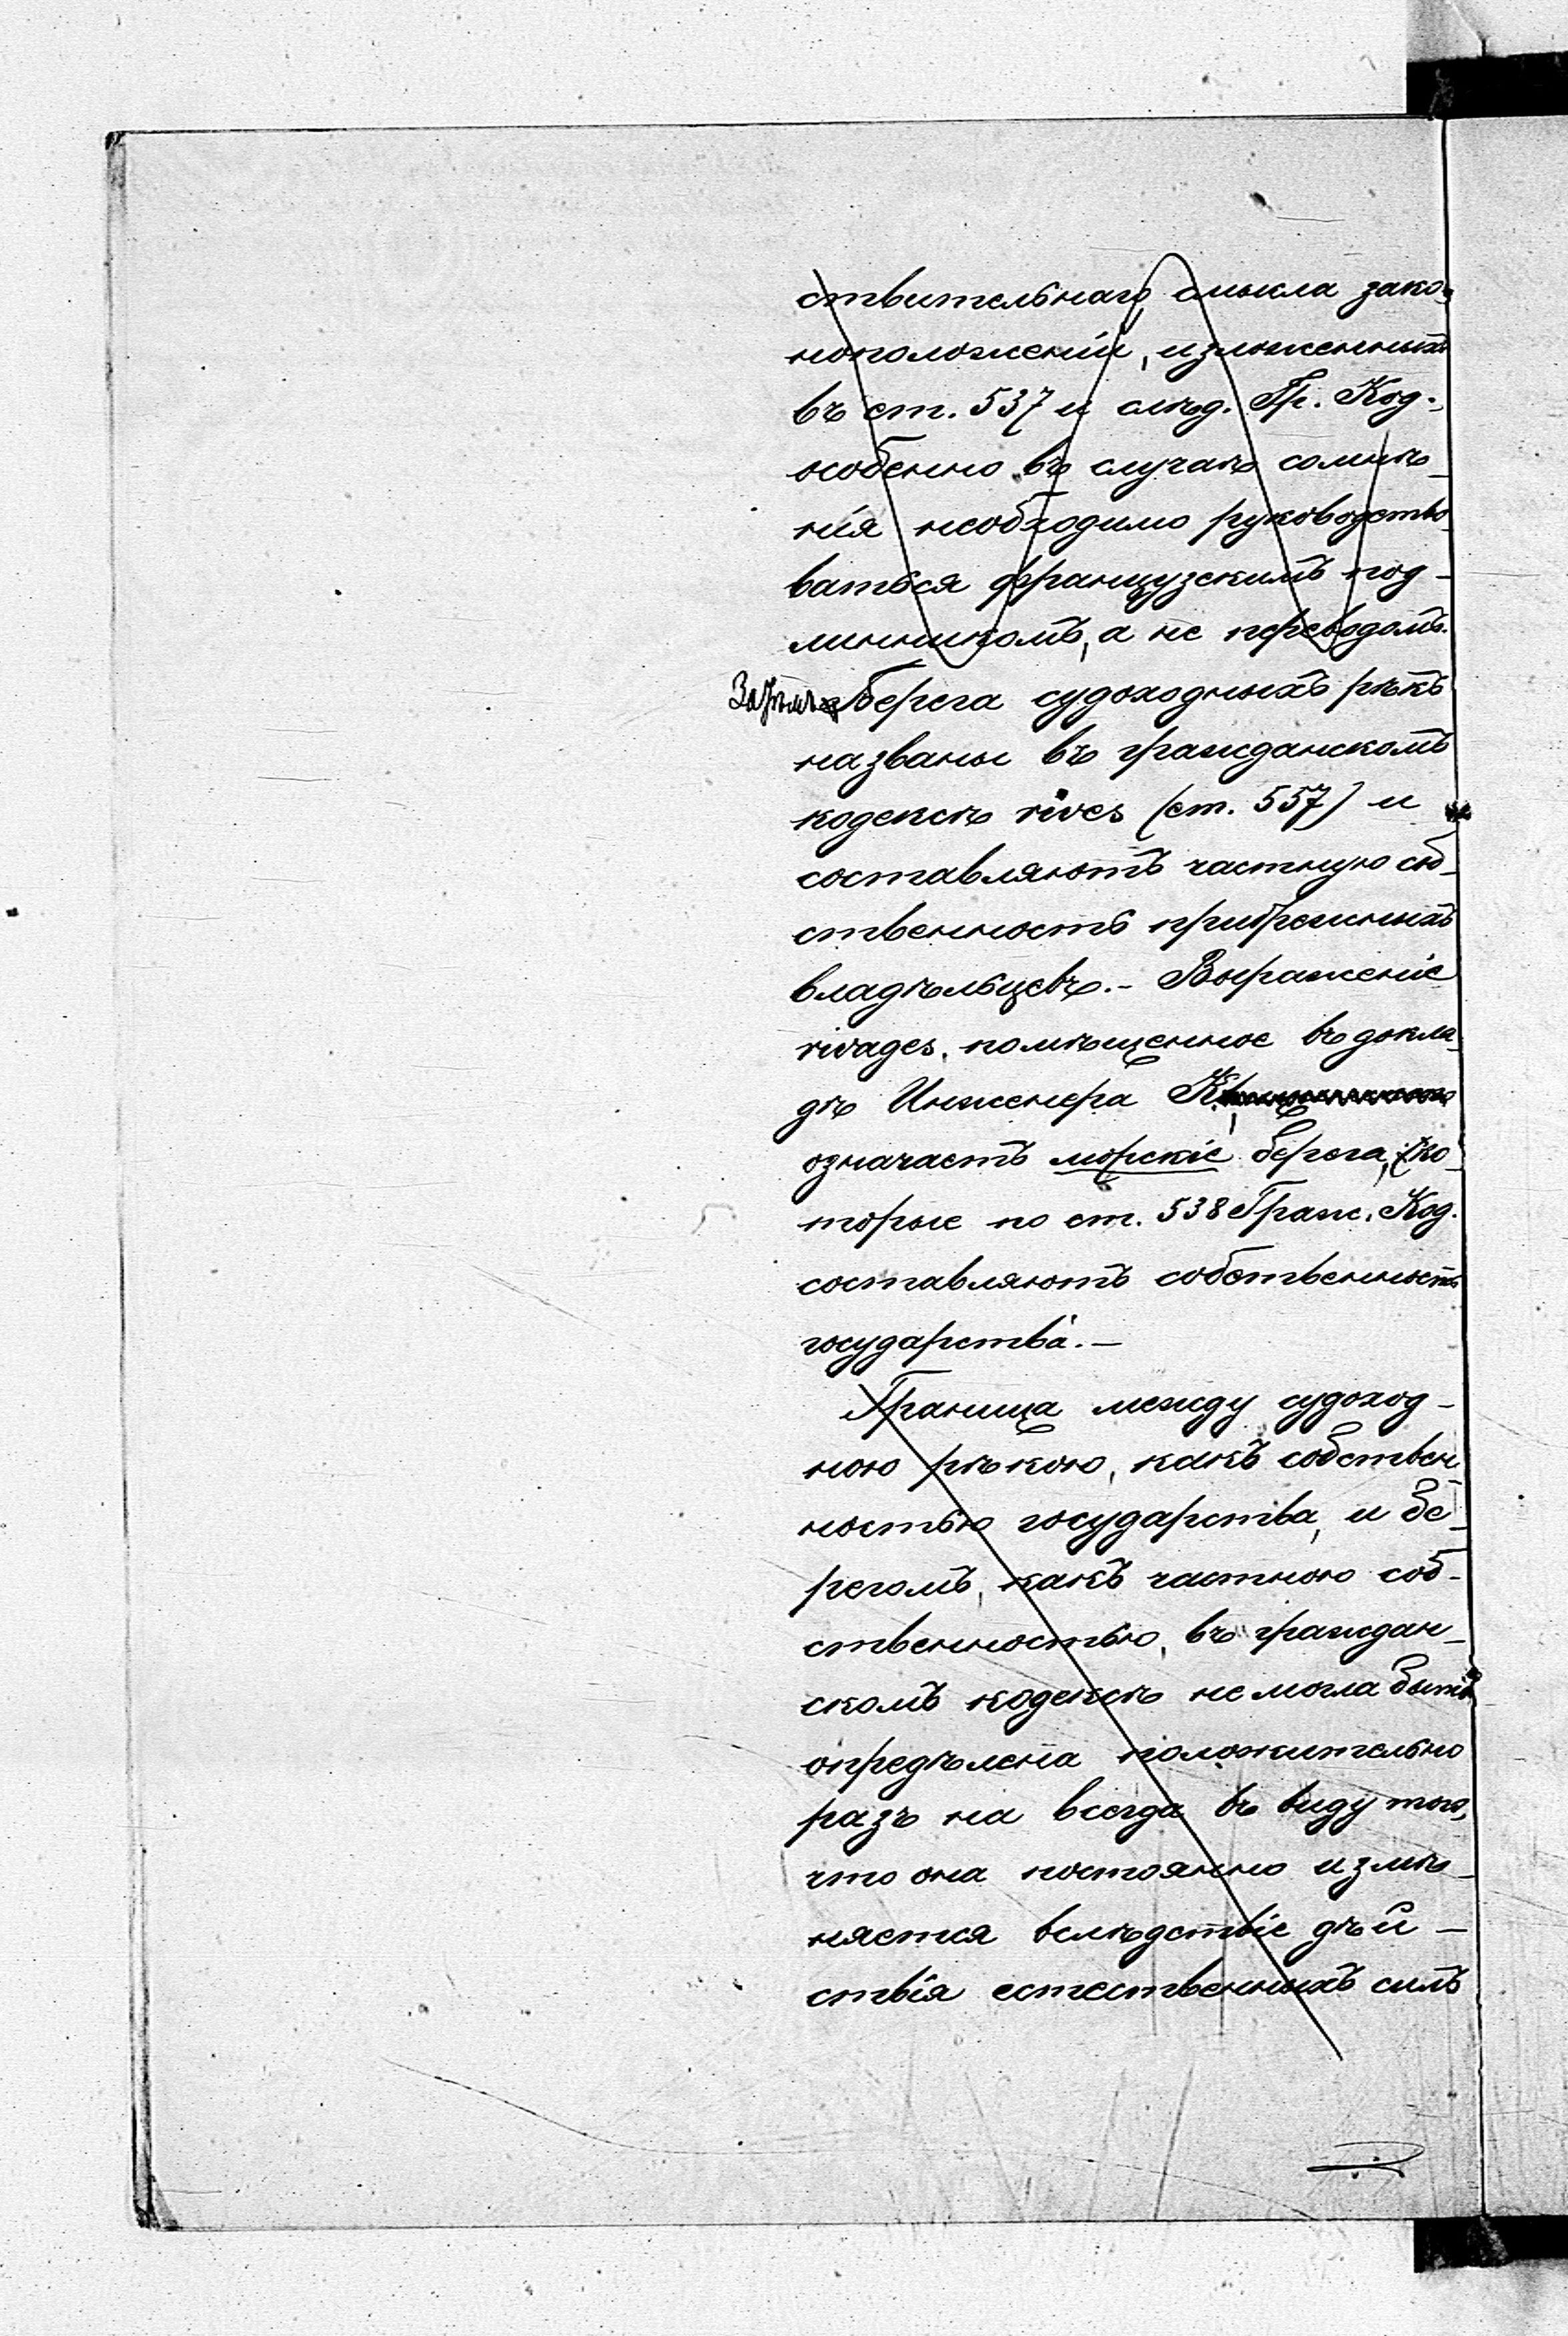 ствительнаго смысла зако-
ноположеній, изложенныхъ
въ ст. 537 и слѣд. Гр. Код.,
особенно въ случаѣ сомнѣ-
нія необходимо руководство-
ваться французскимъ под-
линникомъ, а не переводомъ.
Затѣмъ берега судоходныхъ рѣкъ
названы въ гражданскомъ
кодексѣ rives (ст. 557) и
составляютъ частную соб-
ственность прибрежныхъ
владѣльцевъ. - Выраженіе
rivages, помѣщенное въ докла-
дѣ Инженера К
означаетъ морскіе берега, ко-
торые по ст. 538 Граж. Код.
составляютъ собственность
государства. -
Граница между судоход-
ною рѣкою, какъ собствен-
ностью государства, и бе-
регомъ, какъ частною соб-
ственностью, въ граждан-
скомъ кодексѣ не могла быть
опредѣлена положительно
разъ на всегда въ виду того,
что она постоянно измѣ-
няется вслѣдствіе дѣй-
ствія естественныхъ силъ